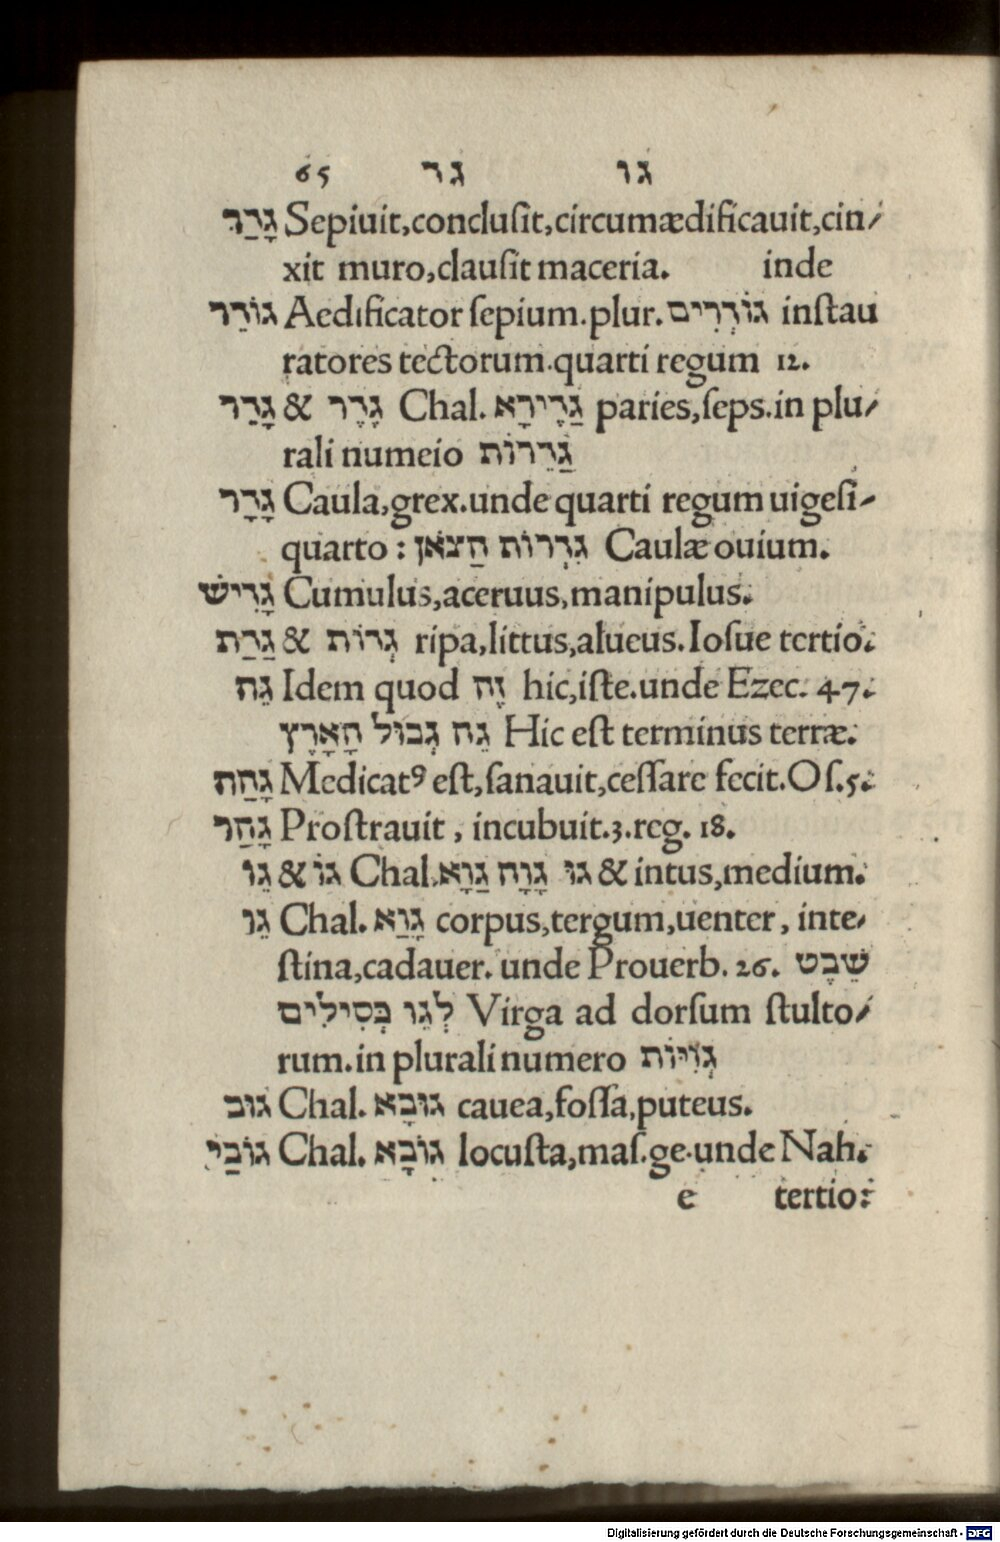 65 גד גו
גָדַר Sepiuit,concluſit,circumædificauit,cin⸗
xit muro,clauſit maceria. inde
גוֹדֵר Aedificator ſepium.plur. גוֹדְרִים inſtau
ratores tectorum.quarti regum 12.
גָדֵר & גֶדֶר Chal. גַדֵירָא paries,ſeps.in plu⸗
rali numeio גַדֵרוֹת
גָדָר Caula,grex.unde quarti regum uigeſi⸗
quarto : גִדְרוֹת הַצֹאן Caulæ ouium.
גָדִישׁ Cumulus,aceruus,manipulus.
גַדַת & גְדוֹת ripa,littus,alueus.Ioſue tertio.
גֵה Idem quod זֶה hic,iſte.unde Ezec. 47.
גֵה גְבוּל הָאָרֶץ Hic eſt terminus terræ.
גָהַה Medicatꝰ eſt,ſanauit,ceſſare fecit.Oſ.5.
גָהַר Proſtrauit , incubuit.3.reg. 18.
גֵו & גוֹ Chal. גַוָא גָוָה גו & intus,medium.
גֵו Chal. גָוַא corpus,tergum,uenter, inte⸗
ſtina,cadauer. unde Prouerb. 26. שֵׁבֶט
לְגֵו כְּסִילִים Virga ad dorſum ſtulto⸗
rum.in plurali numero גְוִיּוֹת
גוּב Chal. גוּבָא cauea,foſſa,puteus.
גוֹבַי Chal. גוֹבָא locuſta,maſ.ge.unde Nah.
e tertio:
Digitalisierung gefördert durch die Deutsche Forschungsgemeinschaft - DFG